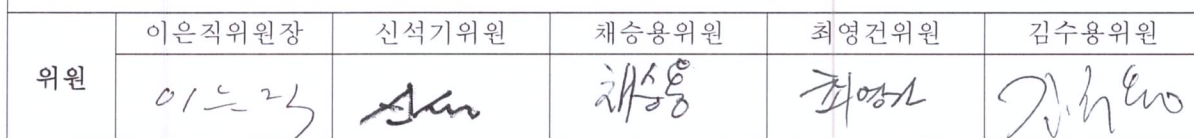 이은직위원장 신석기위원 채승용위원 최영건위원 김수용위원
위원
이은직 채승용 최영건